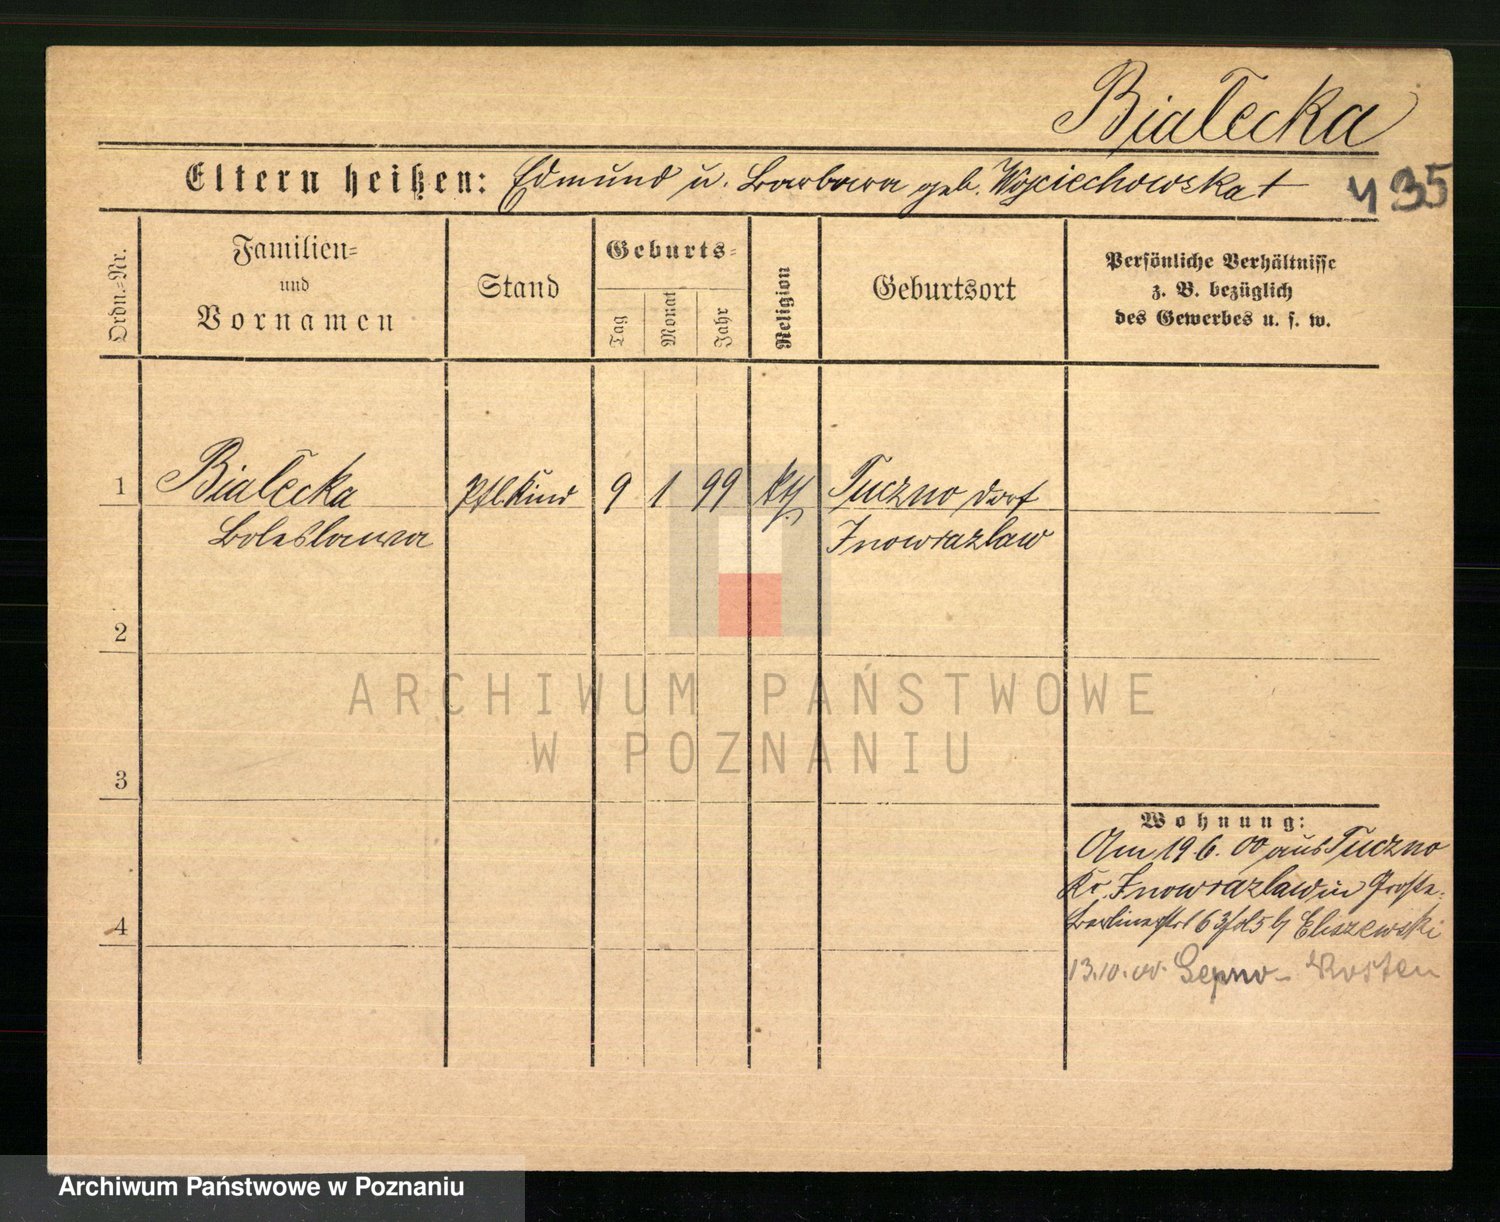 Białecka
Eltern heißen: Edmund u. Barbara geb. Wojciechowska †
435
Ordn.-Nr.
Familien-
und
Vornamen
Stand
Geburts-
Tag
Monat
Jahr
Religion
Geburtsort
Persönliche Verhältnisse
z. B. bezüglich
des Gewerbes u. s. w.
1 Białecka Pflkind 9 1 99 kth Tuczno dorf
Boleslawa Inowrazlaw
2
3
4
Wohnung:
Am 19.6.00 aus Tuczno
Kr. Inowrazlaw in
Berlinerstr 63 Eliszewski
13.10.00. Sepno - Kosten
ARCHIWUM PAŃSTWOWE
W POZNANIU
Archiwum Państwowe w Poznaniu